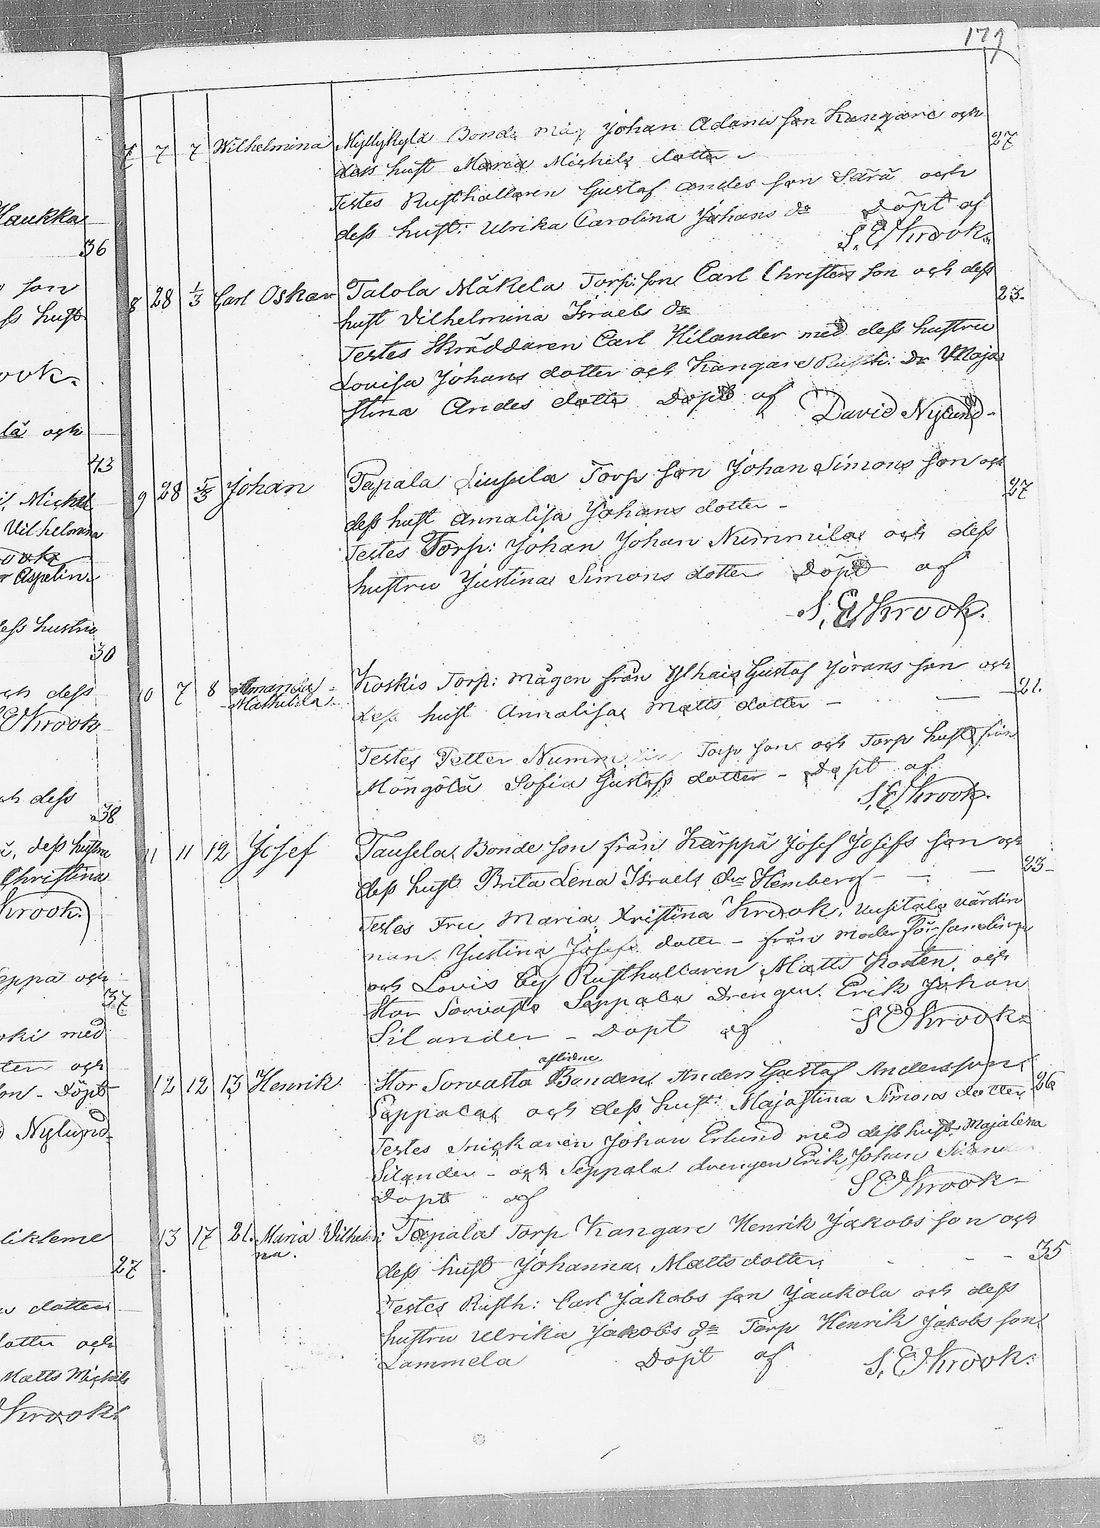 179
Haukka
36
son
hust
43
Michel
Vilhelmina
Aspelin
dess hustru
30
och dess
Skrook
och dess
38
dess hustru
Christina
Skrook.
Seppa och
37
med
och
Döpt
Nylund
27
dotter
dotter och
Matts Michels
Skrook
7 7 7 Wilhelmina Myllykylä Bonde måg Johan Adams son Kangare och 27
dess hust Maria Michels dotter
Testes Rusthållaren Gustaf Andes son Särä och
dess hust: Ulrika Carolina Johans dr Döpt af
S. E Skrook.
8 28 1/3 Carl Oskar Talola Mäkela Torp: son Carl Christers son och dess 23.
hust Vilhelmina Israels dr
Testes Skräddaren Carl Kilander med dess hustru
Lovisa Johans dotter och Kangare Rusth: Dr Maja
Stina Andes dotte Döpt af David Nylund
9 28 5/3 Johan Tapala Torp son Johan Simons son och 27
dess hust Annalisa Johans dotter -
Testes Torp: Johan Johan Nummila och dess
hustru Justina Simons dotter Döpt af
S. E Skrook.
10 7 8 Amanda Koskis Torp: mågen från Gustaf Jörans son och 21.
Mathilda dess hust Annalisa Matts dotter -
Testes Petter Torp son och Torp hust från
Möngölä Sofia Gustafs dotter - Döpt af
S. E Skrook.
11 11 12 Josef Tausela Bonde son från Kärppä Josef Josefs son och 23
dess hust Brita Lena Israels dr Hemberg
Testes Fru Maria Kristina Skrook, värdin
nan Justina Josefs dotte - från
och Lovis Rusthållaren Matts och
Stor Sorvasto Seppala Drengen Erik Johan
Silander - Döpt af S E Skrook.
aflidne
12 12 13 Henrik Stor Sorvasto Bonden Anders Gustaf Andersson 26
Seppala och dess hust: Majastina Simons dotter
Testes Snickaren Johan Erlund med dess hust: Majalena
Silander - och Seppala drengen Erik Johan Silander
Döpt af S E Skrook
13 17 21. Maria Vilhelmi Tapala Torp Kangare Henrik Jakobs son och 35
na. dess hust Johanna Mattsdotter
Testes Rusth: Carl Jakobs son Jaakola och dess
hustru Ulrika Jakobs dr Torp Henrik Jakobs son
Lammela Döpt af S. E Skrook.